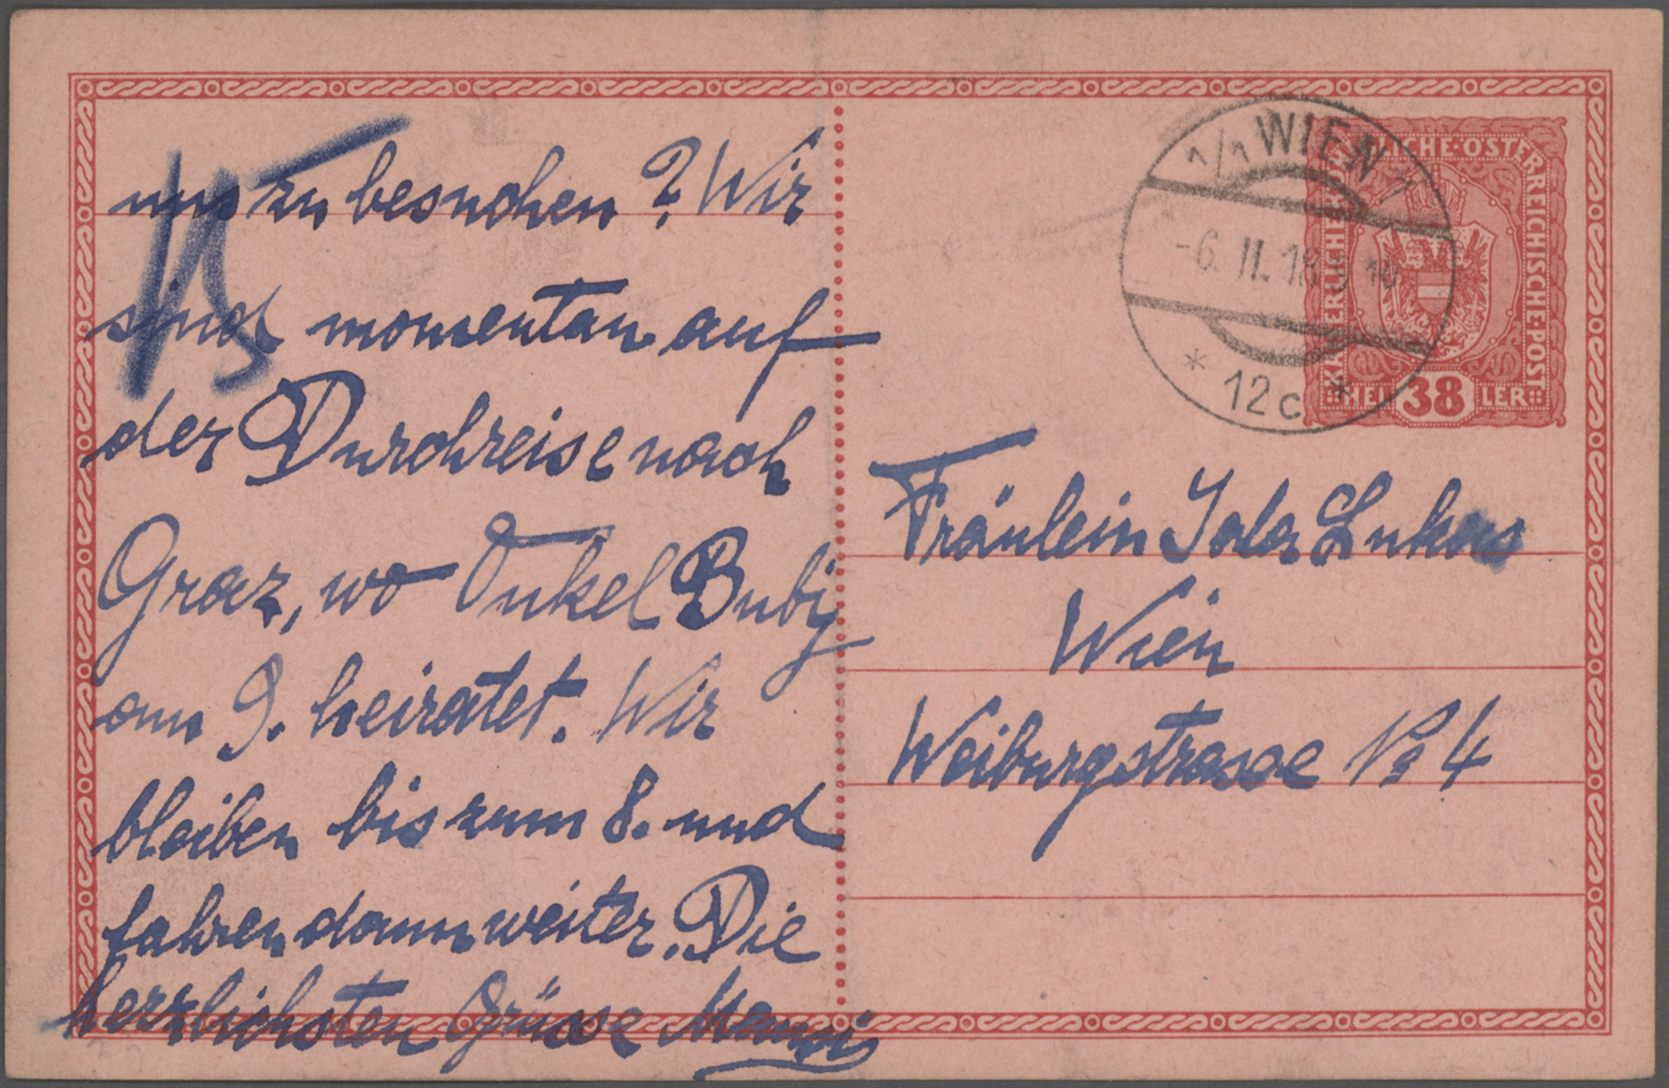 uns zu besuchen? Wir
sind momentan auf
der Durchreise nach
Graz, wo Onkel Buby
am 9. heiratet. Wir
bleiben bis zum 8. und
fahren dann weiter. Die
herzlichsten Grüsse
1/1 WIEN 1
-6. II. 18
* 12c *
KAISERLICHE KÖNIGLICHE·ÖSTERREICHISCHE·POST
HELLER 38
Fräulein Ida Lukas
Wien
Weiburgstrasse No 4